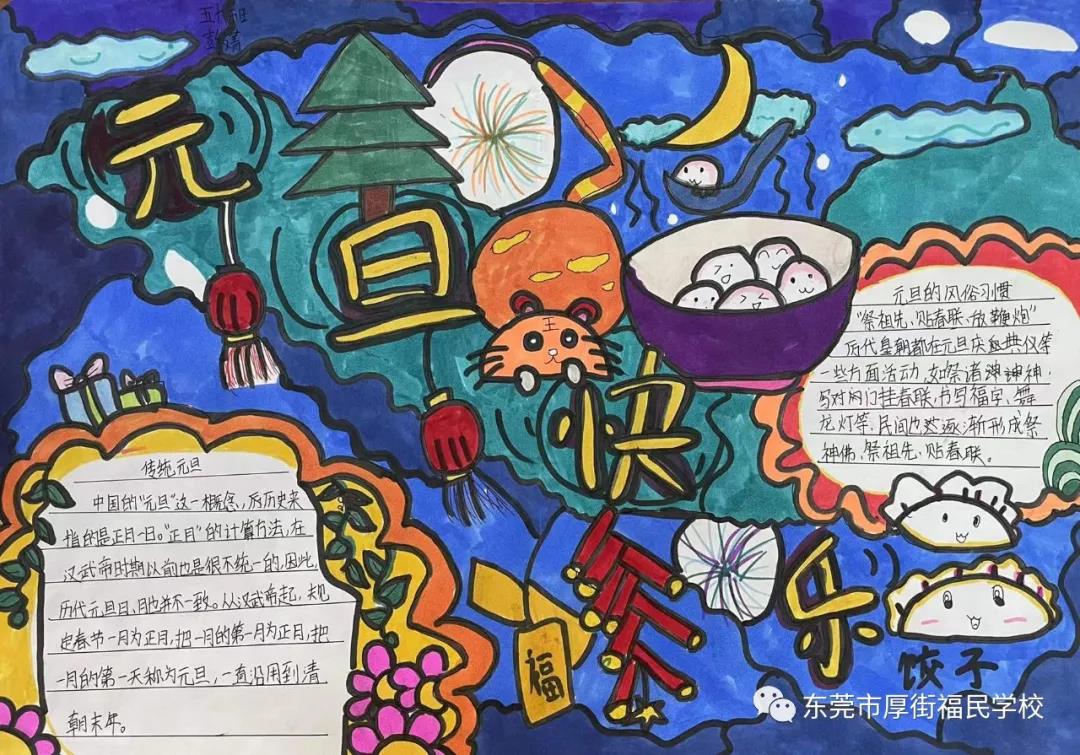 元旦快乐
元旦的风俗习惯
“祭祖先,贴春联,放鞭炮”
历代皇朝都在元旦庆祝典仪等
一些方面活动,如祭诸神神神,
写对网门挂春联,书写福字、舞
龙灯等,民间也然逐渐形成祭
神佛、祭祖先、贴春联。
传统元旦
中国的“元旦”这一概念,历历史来
指的是正月一日。“正月”的计算方法,在
汉武帝时期以前也是很不统一的,因此,
历代元旦日、月也并不一致。从汉武帝起,规
定春节一月为正月,把一月的第一月为正月,把
一月的第一天称为元旦,一直沿用到清
朝末年。
福
饺子
东莞市厚街福民学校